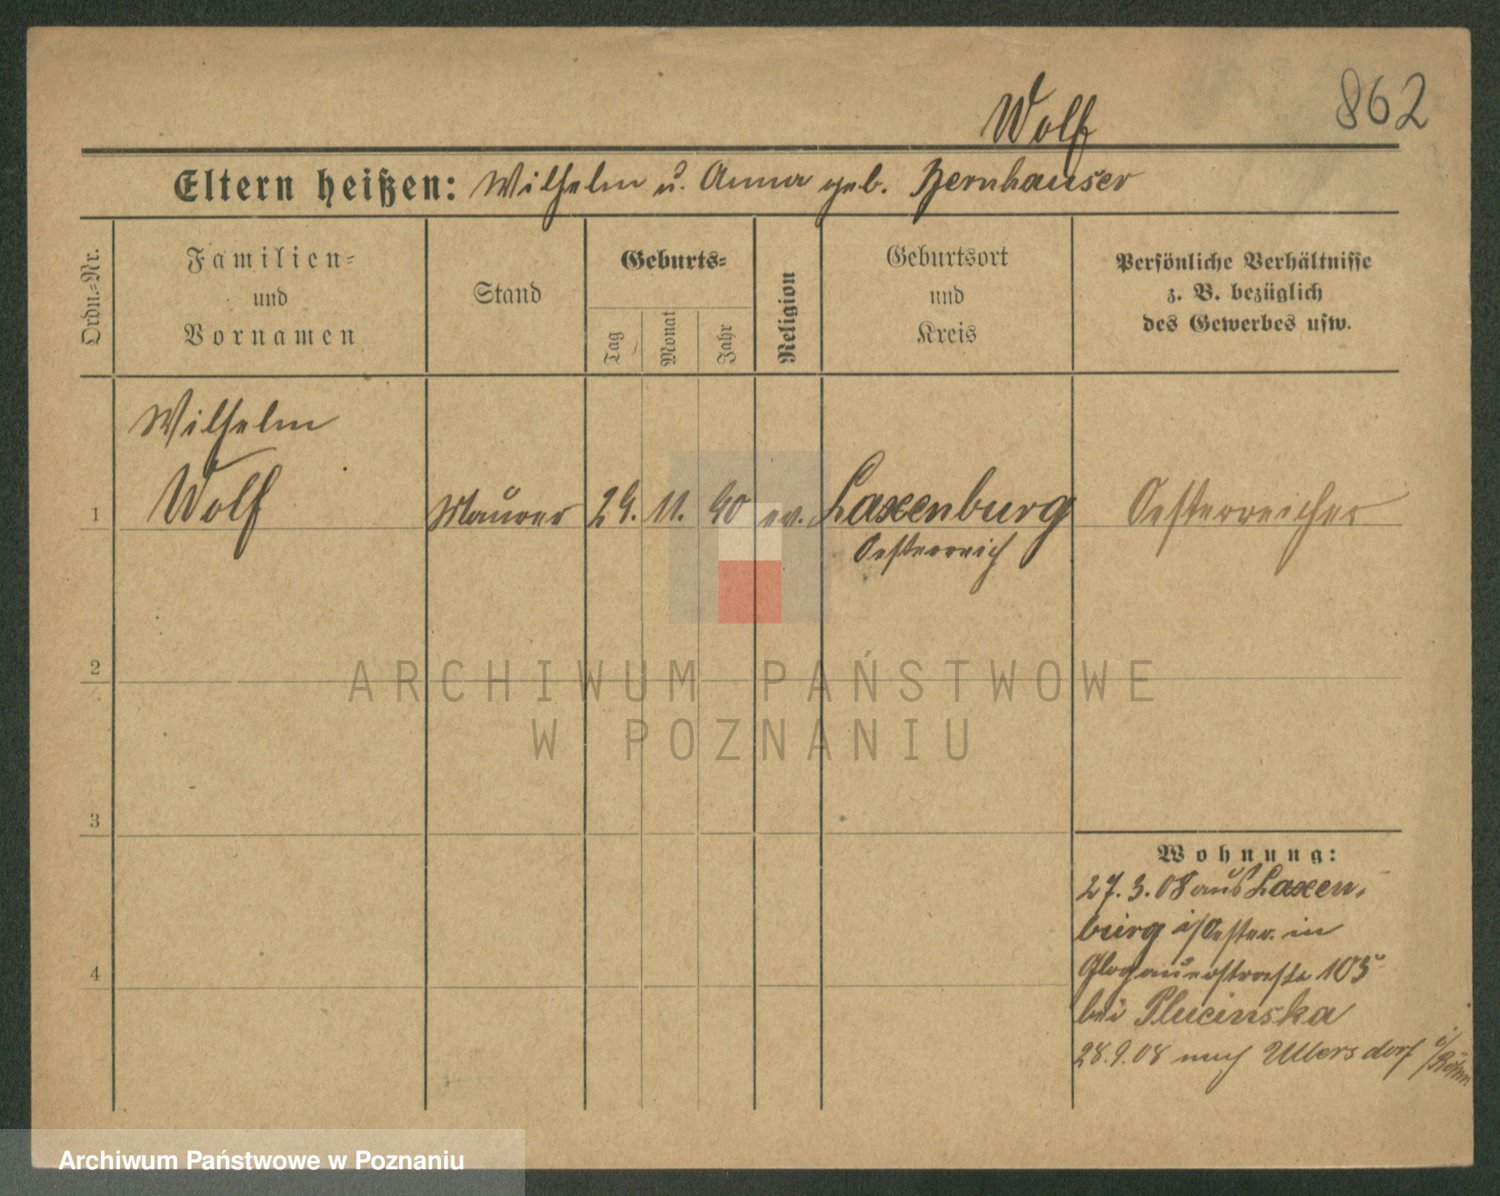 862
Wolf
Eltern heißen: Wilhelm u. Anna geb. Bernhauser
Ordn.-Nr.
Familien-
und
Vornamen
Stand
Geburts-
Tag
Monat
Jahr
Religion
Geburtsort
und
Kreis
Persönliche Verhältnisse
z. B. bezüglich
des Gewerbes usw.
Wilhelm
1 Wolf Maurer 24. 11. 90 ev. Laxenburg Oesterreicher
Oesterreich
2
ARCHIWUM PAŃSTWOWE
W POZNANIU
3
Wohnung:
27. 3. 08 aus Laxen-
burg i/Oester. in
Glogauerstrasse 105
4
bei Plucinska
28. 9. 08 nach Ullersdorf i/Böhm
Archiwum Państwowe w Poznaniu